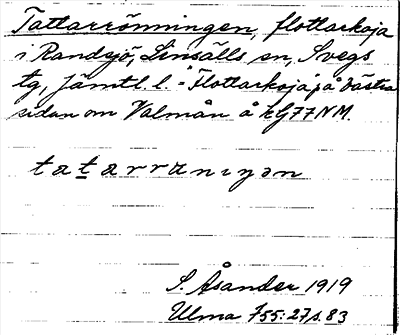 Tattarrönningen, flottarkoja
i Randsjö, Linsälls sn, Svegs
tg, Jämtl. l. - "Flottarkoja" på västra
sidan om Valmån å kG77NM.
tatarräniŋən
S. Åsander 1919
Ulma 755:27, s. 83